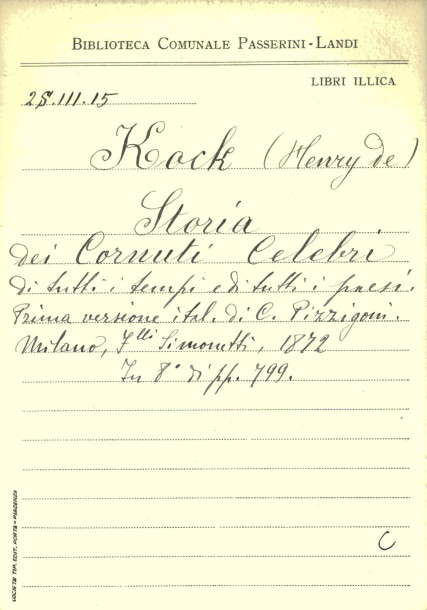 BIBLIOTECA COMUNALE PASSERINI-LANDI
LIBRI ILLICA
2S.III.15
Kock (Henry de)
Storia
dei Cornuti Celebri
di tutti i tempi e di tutti i paesi.
Prima versione ital. di C. Pizzigoni.
Milano, F.lli Simonetti, 1872
In 8° di pp. 799.
C
SOCIETÀ TIP. EDIT. PORTA - PIACENZA